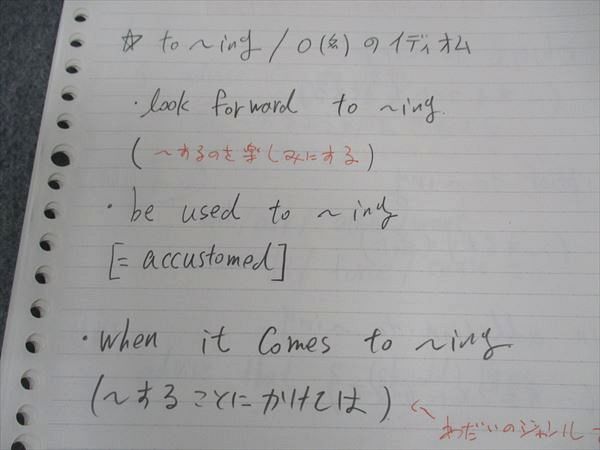 ☆ to ~ing / O(名) のイディオム
・look forward to ~ing.
(~するのを楽しみにする)
・be used to ~ing
[= accustomed]
・when it comes to ~ing
(~することにかけては)
わだいのジャンル